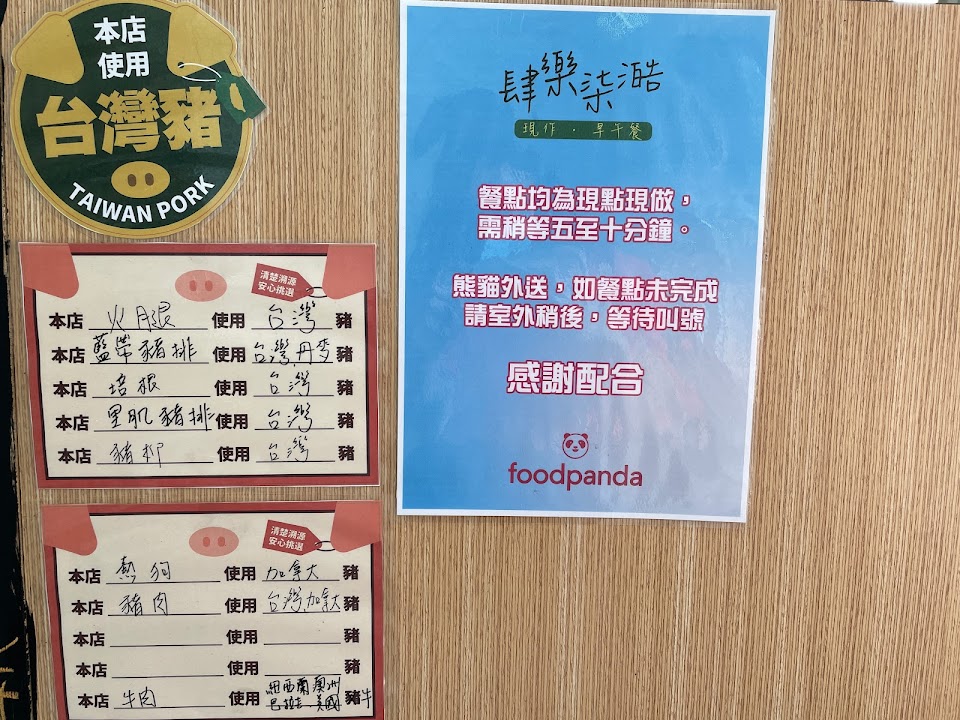 本店
使用
台灣豬
TAIWAN PORK
清楚溯源
安心挑選
本店 火腿 使用 台灣 豬
本店 藍帶豬排 使用 台灣,丹麥 豬
本店 培根 使用 台灣 豬
本店 里肌豬排 使用 台灣 豬
本店 豬柳 使用 台灣 豬
清楚溯源
安心挑選
本店 熱狗 使用 加拿大 豬
本店 豬肉 使用 台灣,加拿大 豬
本店 使用 豬
本店 使用 豬
本店 牛肉 使用 紐西蘭 澳洲 豬牛
巴拉圭 美國
肆樂柒澔
現作 · 早午餐
餐點均為現點現做，
需稍等五至十分鐘。
熊貓外送，如餐點未完成
請室外稍後，等待叫號
感謝配合
foodpanda